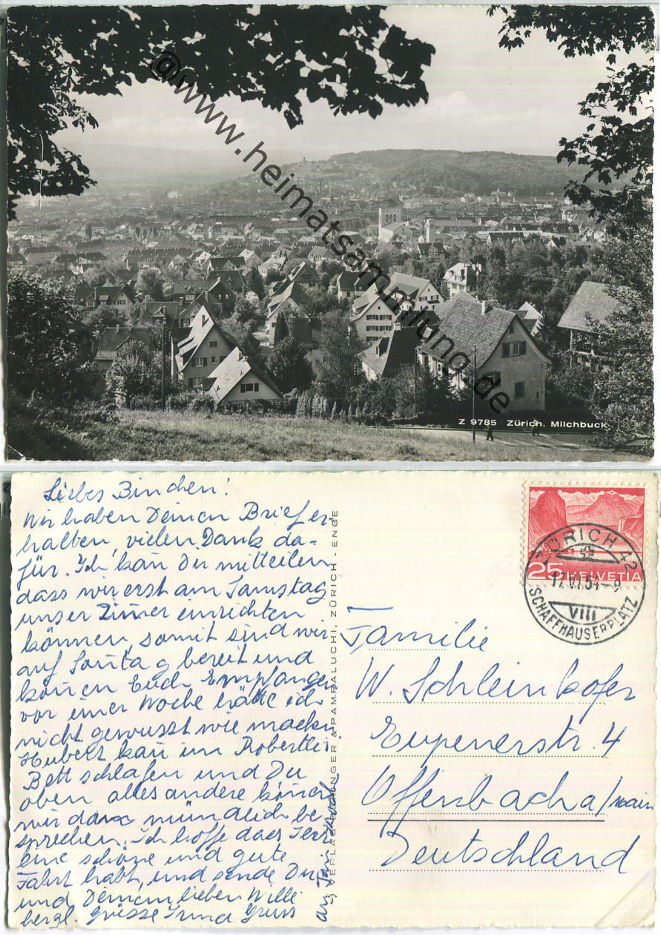 @www.heimatsammlung.de
Z 9785 Zürich. Milchbuck
Liebes Binchen!
Wir haben Deinen Brief er-
halten, vielen Dank da-
für. Ich kan Dir mitteilen
dass wir erst am Samstag
unser Zimer einrichten
können somit sind wir
auf Sontag bereit und
könen Euch Empfangen
vor einer Woche hätte ich
nicht gewusst wie machen
Hubert kan im Robertli
Bett schlafen und Du
oben alles andere könen
wir dan mündlich be-
sprechen. Ich hoffe dass Ihr
eine schöne und gute
Fahrt habt, und sende Dir
und Deinem lieben Willi
herzl. Grüsse Irma Gruss
an
VERLAG WEHRLI PAMPALUCHI, ZÜRICH - ENGE
HELVETIA
25
ZÜRICH 42
17.VI.54 - 9
VIII
SCHAFFHAUSERPLATZ
Familie
W. Schleinkofer
Eupenerstr. 4
Offenbach a/main
Deutschland